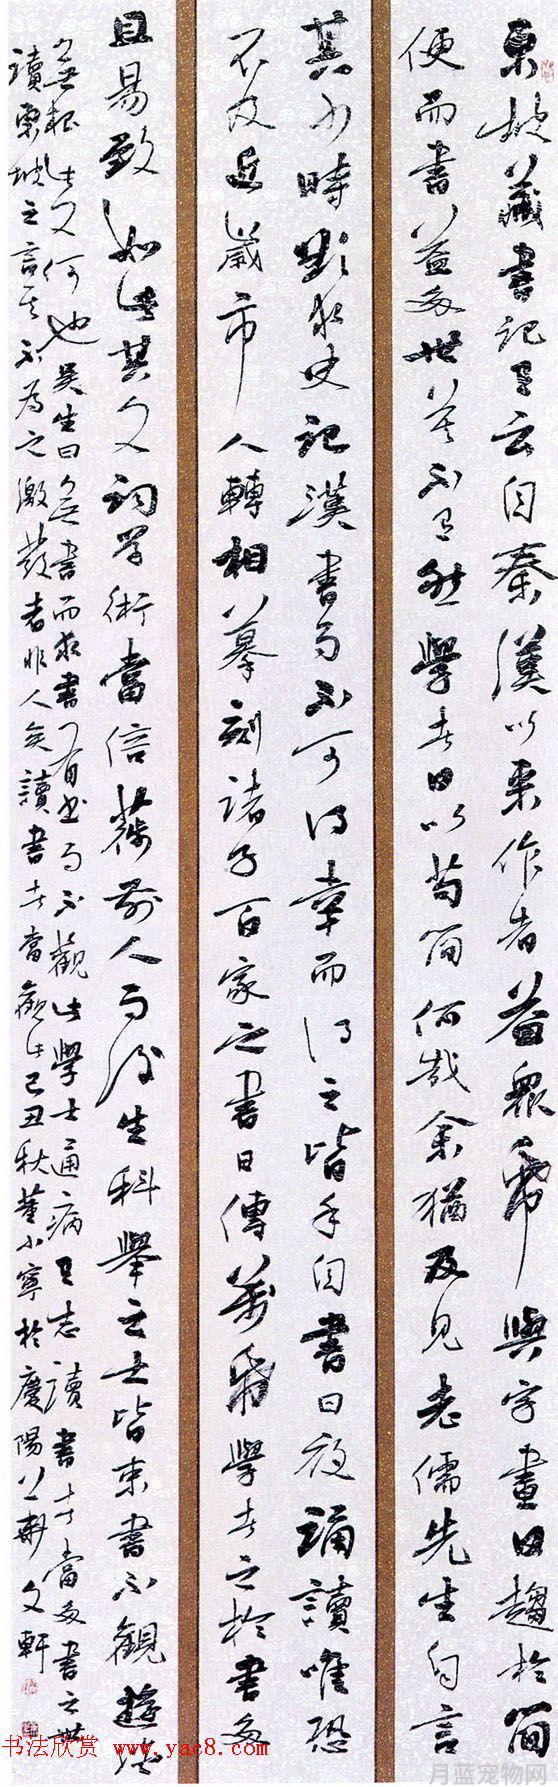 東坡藏書記有云自秦漢以来作者益衆紙與字畫日趨於簡
便而書益多世莫不有然學者日以苟简何哉余猶及見老儒先生自言
其少時欲求史記漢書而不可得幸而得之皆手自書日夜誦讀唯恐
不及近歲市人轉相摹刻諸子百家之書日傳萬紙學者之於書多
且易致如此其文詞學術當倍蓰前人而後生科舉之士皆束書不觀遊談
無根此又何也吴生曰無書而求書有書而不觀此學士通病有志讀書者當多書之
讀東坡之言其不為之激發者非人矣讀書者當觀此己丑秋董小寧於慶陽文軒
书法欣赏 www.yac8.com
月蓝宠物网